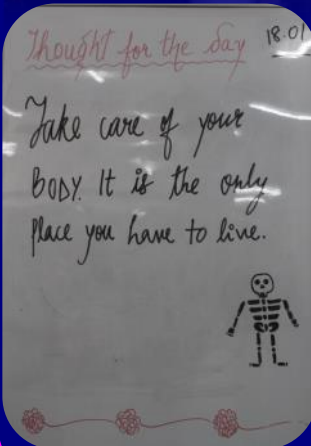 Thought for the day 18.01
Take care of your
BODY. It is the only
Place you have to live.